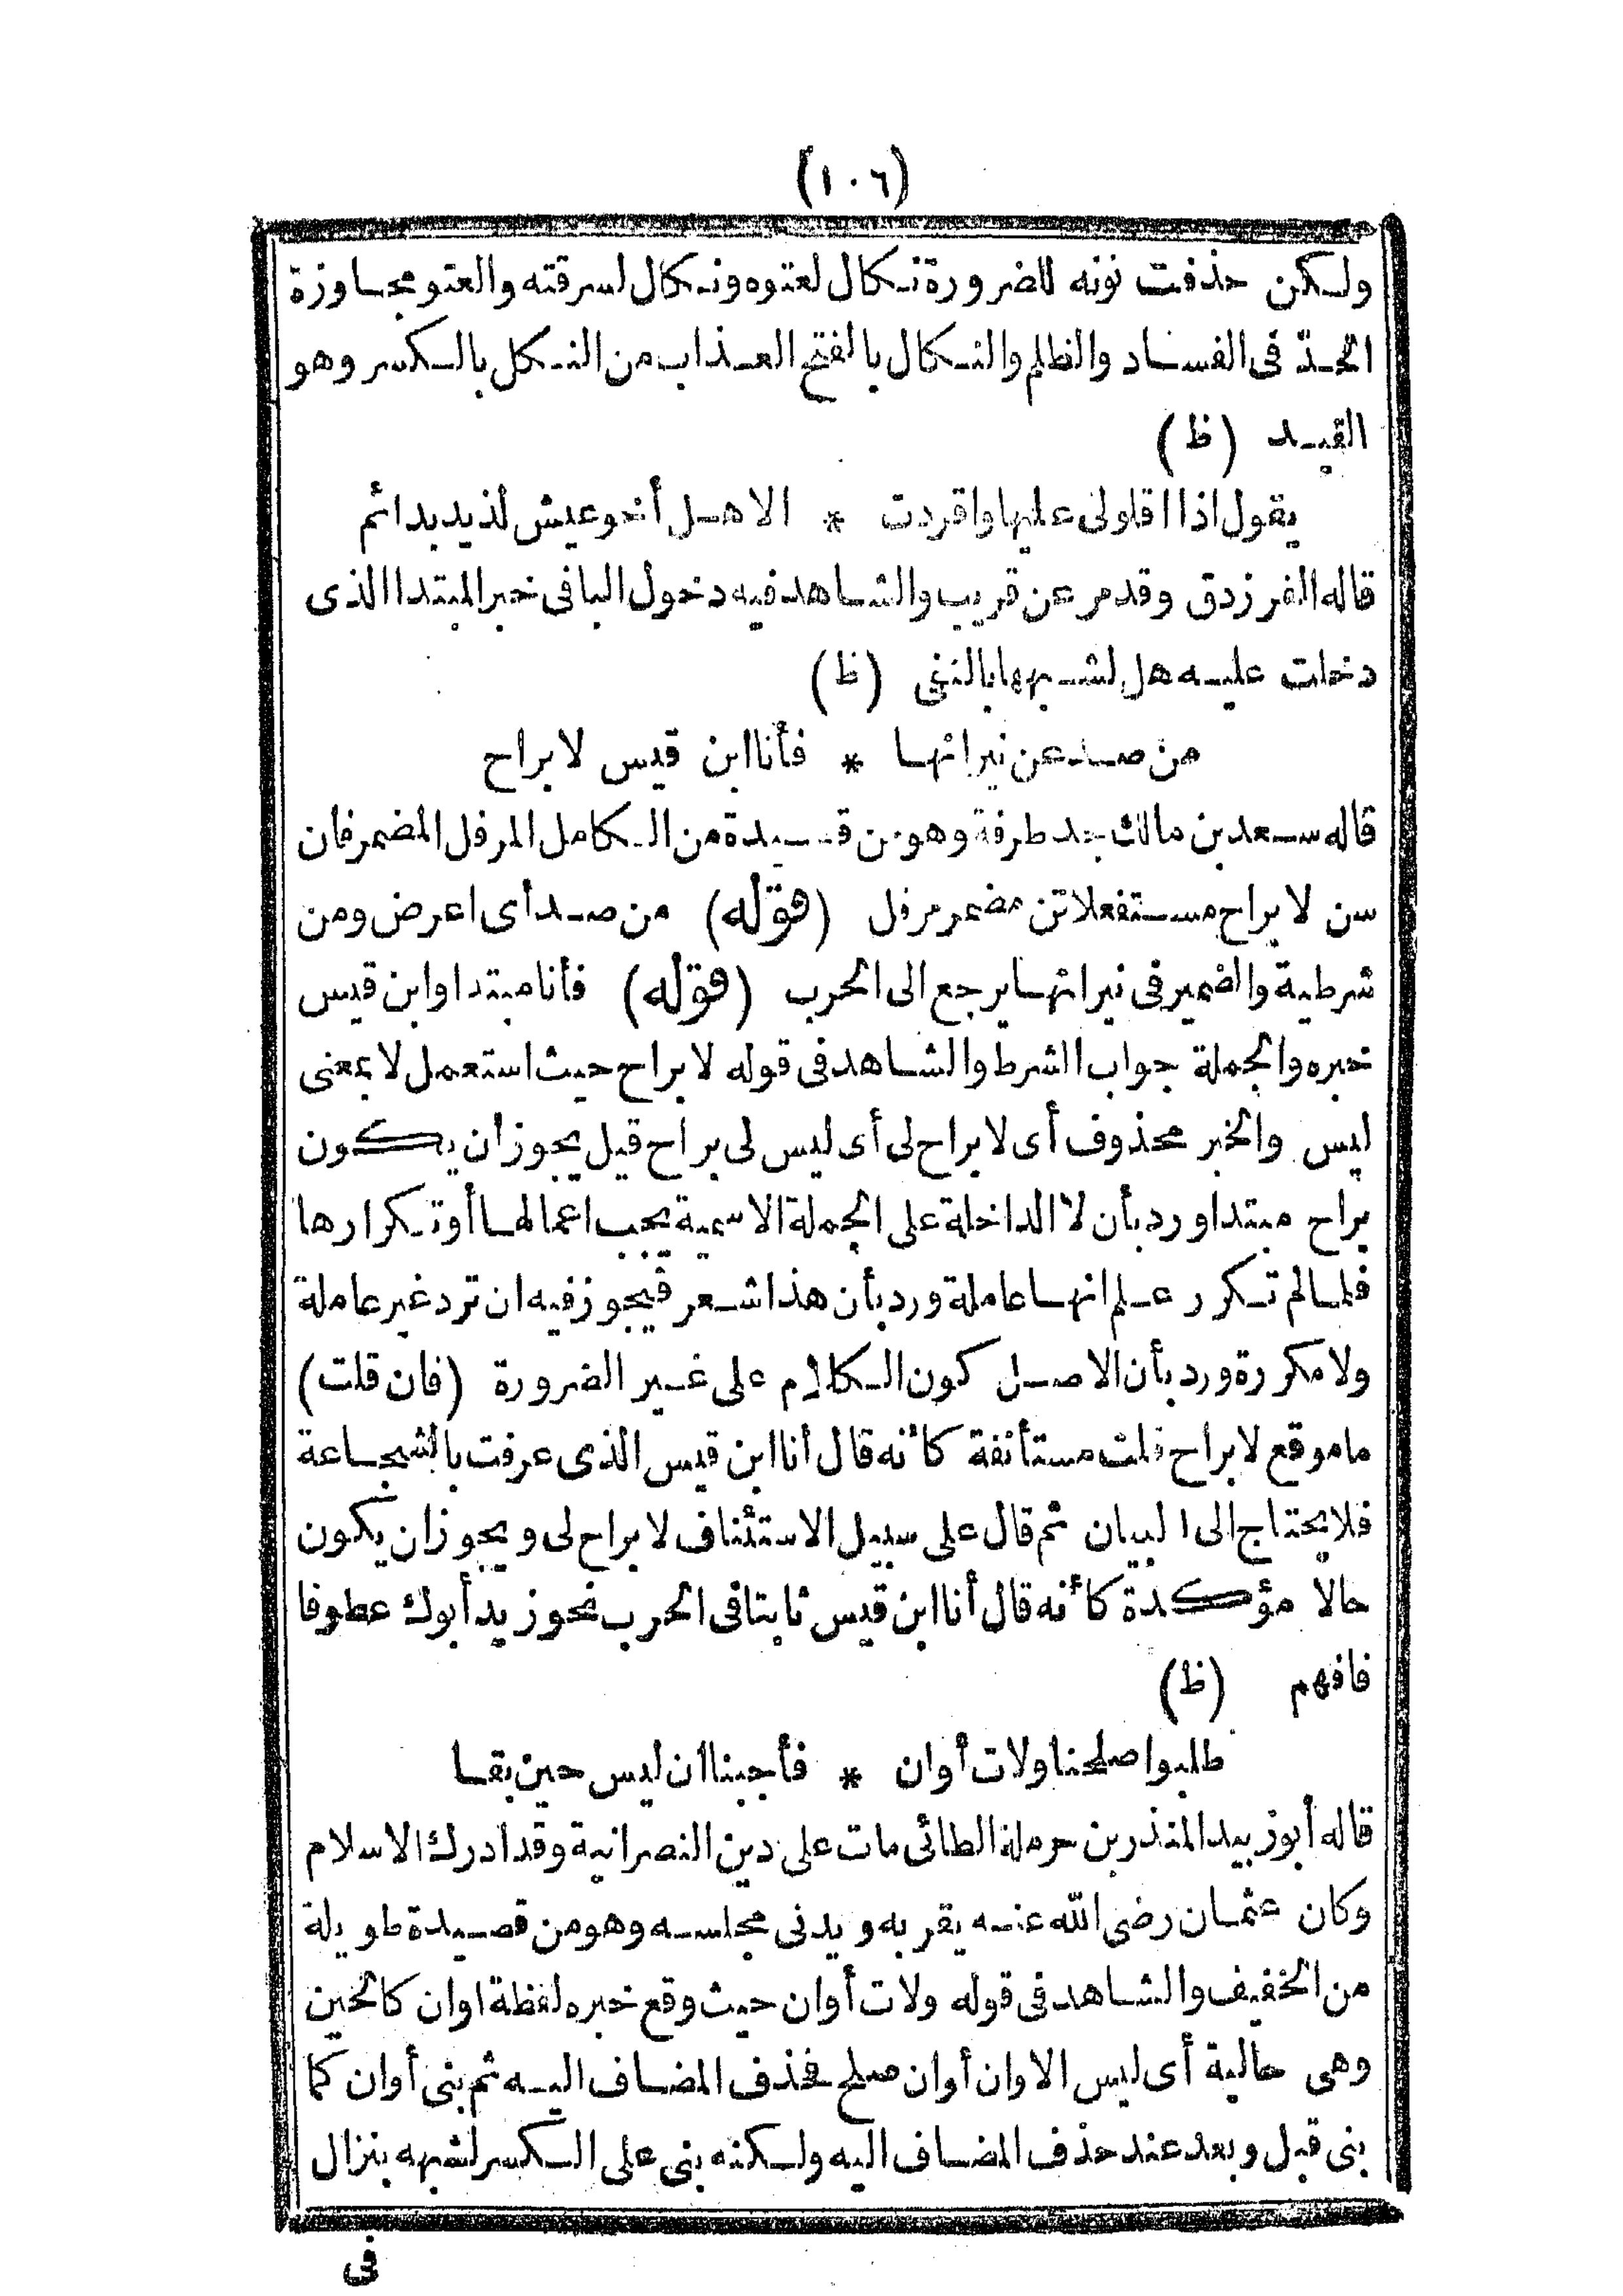 (١٠٦)
ولكن حذفت نونه للضرورة نكال لعتوه ونكال لسرقته والعتو مجاوزة
الحد في الفساد والظلم والنكال بالفتح العذاب من النكل بالكسر وهو
القيد (ظ)
يقول اذا اقلولى عليها واقردت * الا هل أخو عيش لذيذ بدائم
قاله الفرزدق وقد مر عن قريب والشاهد فيه دخول البا فى خبر المبتدا الذى
دخلت عليه هل لشبهها بالنفى (ظ)
من صد عن نيرانها * فأنا ابن قيس لا براح
قاله سعد بن مالك جد طرفة وهو من قصيدة من الكامل المرفل المضمر فان
سن لا براح مستفعلاتن مضمر مرفل (قوله) من صد أى اعرض ومن
شرطية والضمير فى نيرانها يرجع الى الحرب (قوله) فأنا مبتدا وابن قيس
خبره والجملة جواب الشرط والشاهد فى قوله لا براح حيث استعمل لا بمعنى
ليس والخبر محذوف أى لا براح لى أى ليس لى براح قيل يجوز ان يكون
براح مبتدا ورد بأن لا الداخلة على الجملة الاسمية يجب اعمالها أو تكرارها
فلما لم تكرر علم انها عاملة ورد بأن هذا شعر فيجوز فيه ان ترد غير عاملة
ولا مكررة ورد بأن الاصل كون الكلام على غير الضرورة (فان قلت)
ما موقع لا براح قلت مستأنفة كأنه قال أنا ابن قيس الذى عرفت بالشجاعة
فلا يحتاج الى البيان ثم قال على سبيل الاستئناف لا براح لى ويجوز ان يكون
حالا مؤكدة كأنه قال أنا ابن قيس ثابتا فى الحرب نحو زيد أبوك عطوفا
فافهم (ظ)
طلبوا صلحنا ولات أوان * فأجبنا ان ليس حين بقا
قاله أبو زبيد المنذر بن حرملة الطائى مات على دين النصرانية وقد أدرك الاسلام
وكان عثمان رضى الله عنه يقربه ويدنى مجلسه وهو من قصيدة طويلة
من الخفيف والشاهد فى قوله ولات أوان حيث وقع خبره لفظة اوان كالحين
وهى حالية أى ليس الاوان أوان صلح فحذف المضاف اليه ثم بنى أوان كما
بنى قبل وبعد عند حذف المضاف اليه ولكنه بنى على الكسر لشبهه بنزال
فى